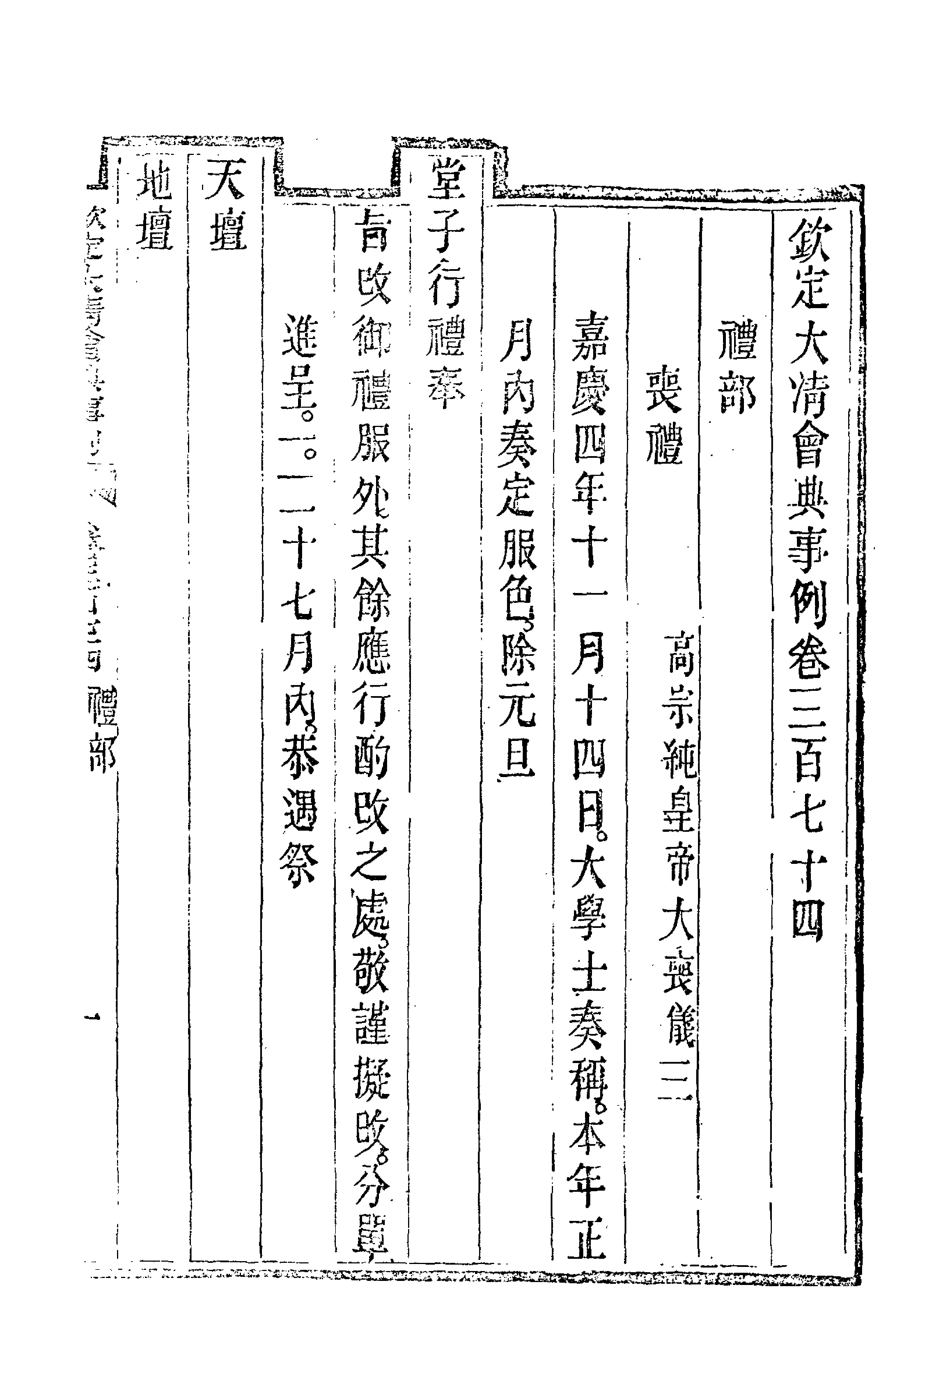 欽定大淸會典事例卷三百七十四
禮部
喪禮　高宗純皇帝大喪儀三
嘉慶四年十一月十四日。大學士奏稱。本年正
月內奏定服色。除元旦
堂子行禮奉
旨改御禮服外。其餘應行酌改之處。敬謹擬改。分單
進呈。一。二十七月內。恭遇祭
天壇
地壇
欽定大淸會典事例 卷三百七十四 禮部 一